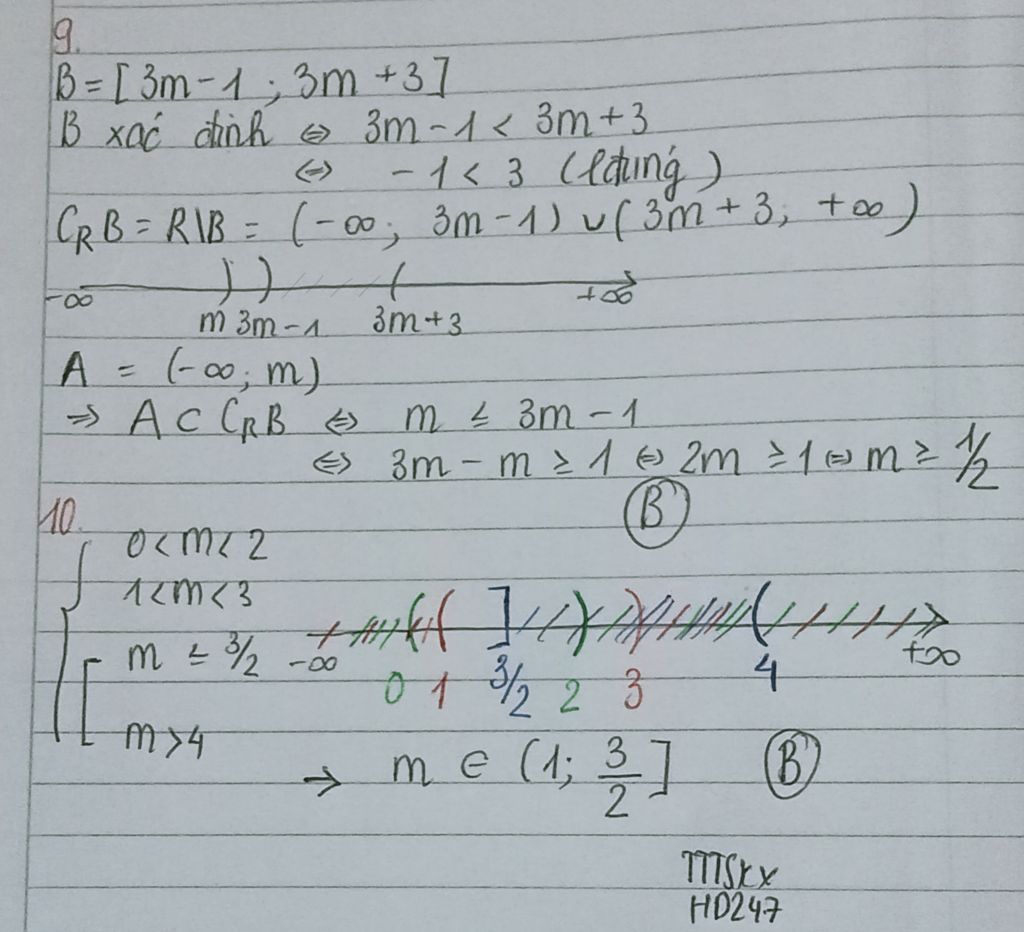 9.
B = [ 3m - 1 ; 3m + 3 ]
B xác định ⇔ 3m - 1 < 3m + 3
⇔ - 1 < 3 (lđúng)
C_R B = R\B = (-∞; 3m - 1) ∪ (3m + 3; +∞)
-∞ m 3m - 1 3m + 3 +∞
A = (-∞; m)
⇒ A ⊂ C_R B ⇔ m ≤ 3m - 1
⇔ 3m - m ≥ 1 ⇔ 2m ≥ 1 ⇔ m ≥ 1/2
B
10.
0 < m < 2
1 < m < 3
m ≤ 3/2
-∞ 0 1 3/2 2 3 4 +∞
m > 4
→ m ∈ (1; 3/2] B
TTTSkx
HD247